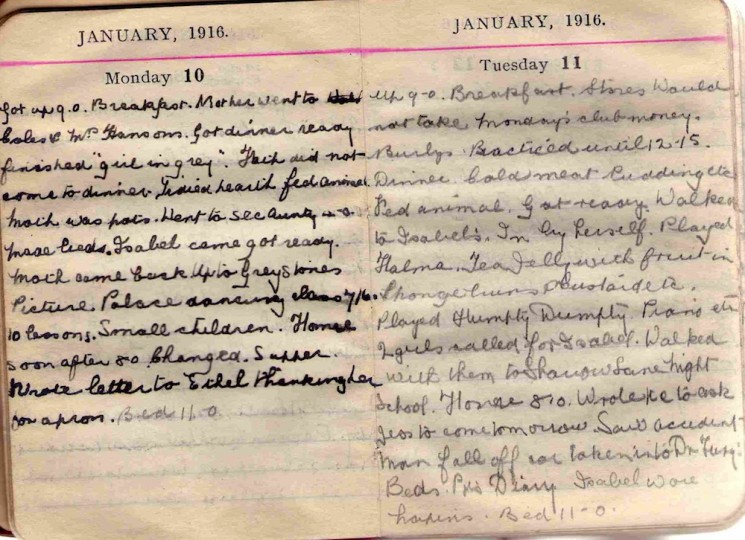 JANUARY, 1916.
Monday 10
Got up 9.0. Breakfast. Mother went to
Coles & Mrs Hansons. Got dinner ready
finished "girl in grey". Fath did not
come to dinner. Tidied hearth fed animal.
Moth was pots. Went to see Aunty
made beds. Isabel came got ready.
Moth came back Up to Greystones
Picture. Palace dancing class 7/6.
10 lessons. Small children. Home
soon after 8 0. Changed. Supper.
Wrote letter to Ethel thanking her
for apron. Bed 11.0
JANUARY, 1916.
Tuesday 11
up 9-0. Breakfast. Stores Would
not take Monday's club money.
Practiced until 12-15.
Dinner. Cold meat Pudding etc
Fed animal. Got ready. Walked
to Isabel's. In by herself. Played
Halma. Tea Jelly with fruit in
Sponge buns Custard etc.
Played Humpty Dumpty. Piano etc
2 girls called for Isabel. Walked
with them to Sharrow Lane Night
School. Home 8 10. Wrote to ask
to come tomorrow. Saw accident-
man fall off car taken into Dr
Beds. Diary Isabel wore
Bed 11-0.